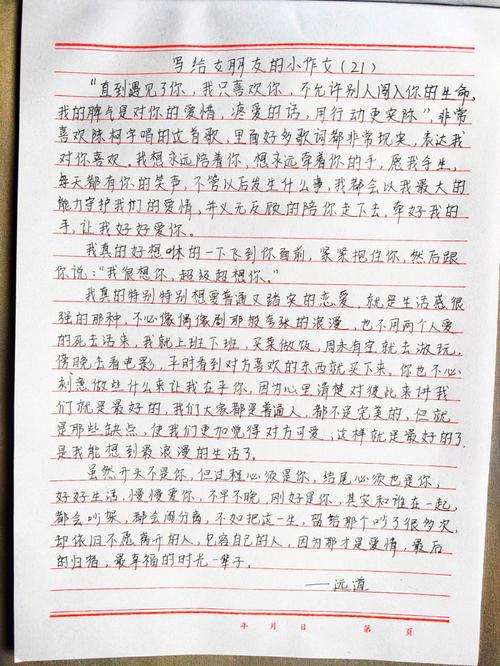 写给女朋友的小作文（21）
“直到遇见了你，我只喜欢你，不允许别人闯入你的生命，
我的脾气是对你的爱情，疼爱的话，用行动更实际”，非常
喜欢陈柯宇唱的这首歌，里面好多歌词都非常现实，表达我
对你喜欢，我想永远陪着你，想永远牵着你的手，愿我余生，
每天都有你的笑声，不管以后发生什么事，我都会以我最大的
能力守护我们的爱情，并义无反顾的陪你走下去，牵好我的
手，让我好好爱你。
我真的好想咻的一下飞到你面前，紧紧抱住你，然后跟
你说：“我很想你，超级超想你。”
我真的特别特别想要普通又踏实的恋爱，就是生活感很
强的那种，不必像偶像剧那般夸张的浪漫，也不用两个人爱
的死去活来，我就上班下班，买菜做饭，周末有空就去游玩，
傍晚去看电影，平时看到对方喜欢的东西就买下来，你也不必
刻意做些什么来让我在乎你，因为心里清楚对彼此来讲我
们就是最好的，我们大家都是普通人，都不是完美的，但就
是那些缺点，使我们更加觉得对方可爱，这样就是最好的了，
是我能想到最浪漫的生活了。
虽然开头不是你，但过程必须是你，结尾必须也是你，
好好生活，慢慢爱你，不早不晚，刚好是你，其实和谁在一起，
都会吵架，都会闹分离，不如把这一生，留给那个吵了很多次，
却依旧不愿离开的人，包容自己的人，因为那才是爱情，最后
的归宿，最幸福的时光一辈子。
——远道
年 月 日 第 页